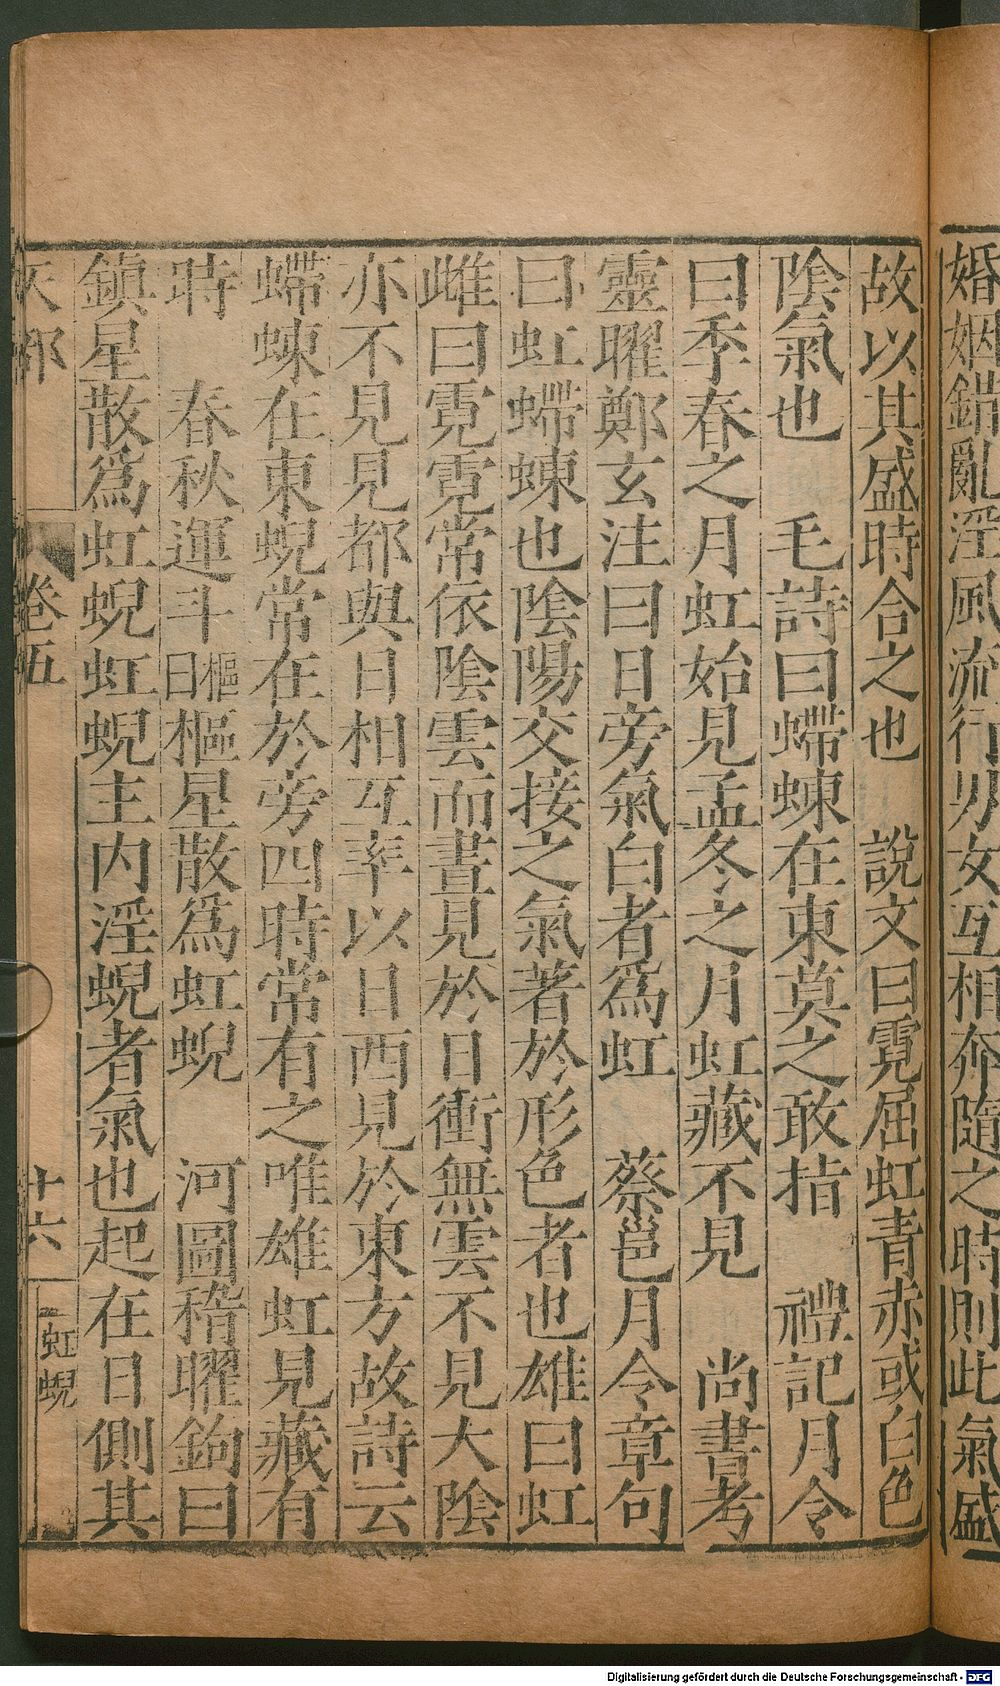 婚姻錯亂淫風流行男女互相奔隨之時則此氣盛
故以其盛時合之也　說文曰霓屈虹青赤或白色
陰氣也　毛詩曰蝃蝀在東莫之敢指　禮記月令
曰季春之月虹始見孟冬之月虹藏不見　尚書考
靈曜鄭玄注曰日旁氣白者爲虹　蔡邕月令章句
曰虹螮蝀也陰陽交接之氣著於形色者也雄曰虹
雌曰霓霓常依陰雲而晝見於日衝無雲不見大陰
亦不見見都與日相互率以日西見於東方故詩云
螮蝀在東蜺常在於旁四時常有之唯雄虹見藏有
時　春秋運斗樞曰樞星散爲虹蜺　河圖稽曜鉤曰
鎮星散爲虹蜺虹蜺主内淫蜺者氣也起在日側其
天部　卷五　十六　虹蜺
Digitalisierung gefördert durch die Deutsche Forschungsgemeinschaft - DFG